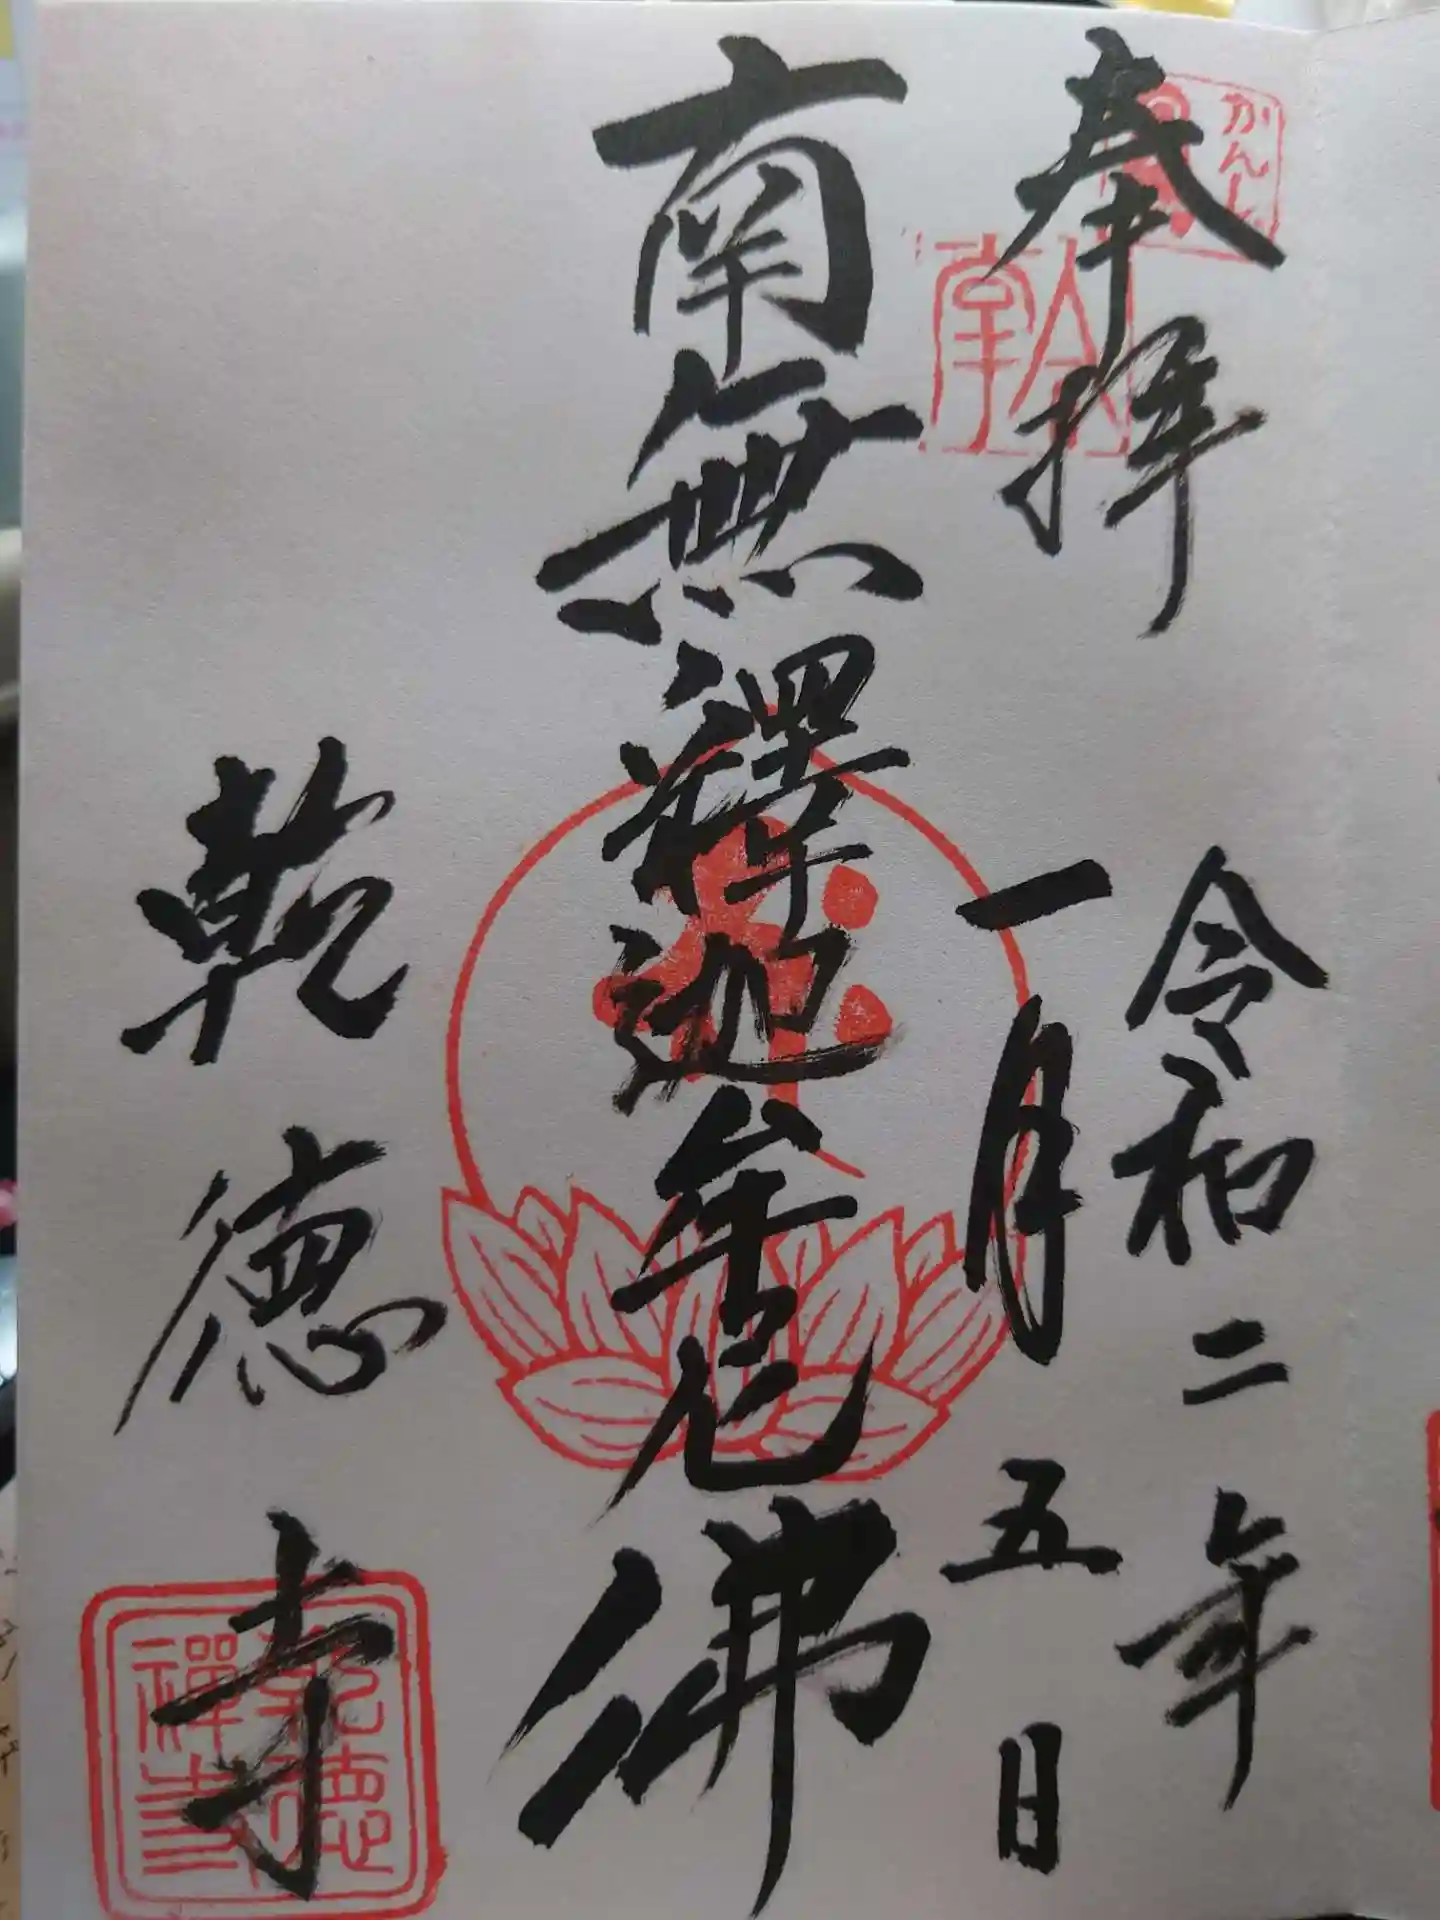 奉拜
かんし
合掌
令和二年
一月五日
南無釋迦牟尼佛
乾德寺
乾德
禅寺